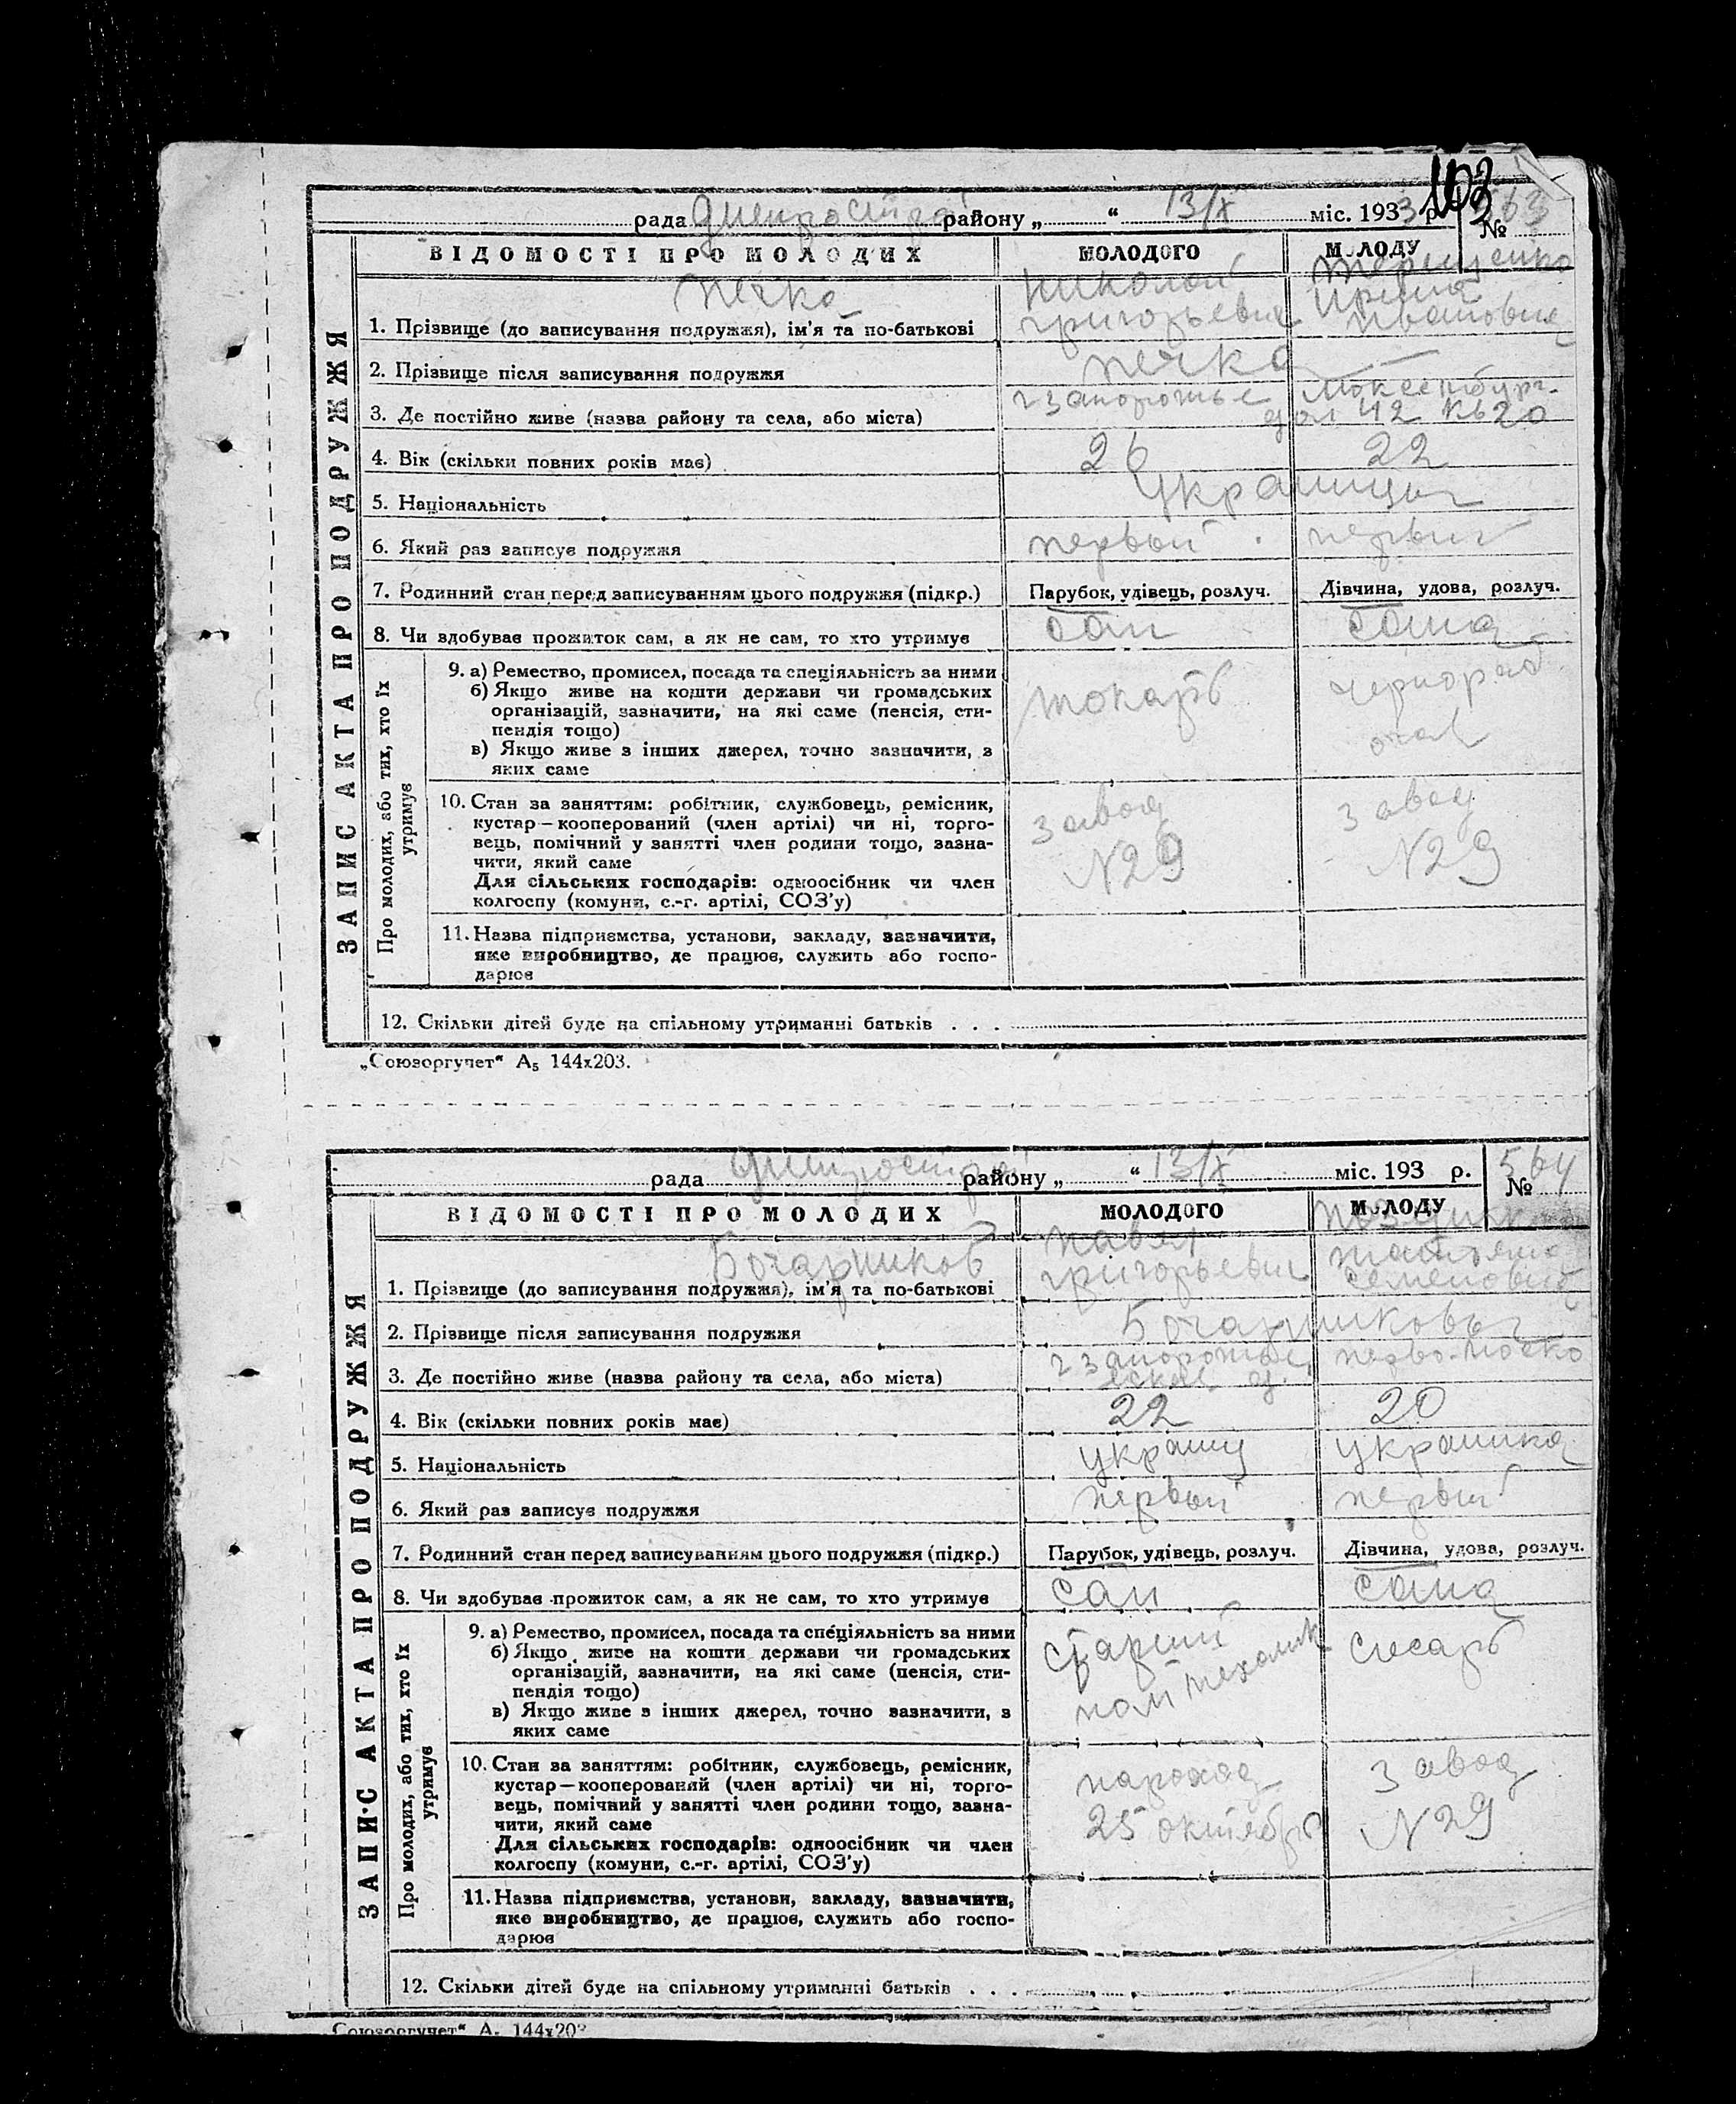 103
рада Днепрострой району „ “ 13/X міс. 1933 р. № 563
ВІДОМОСТІ ПРО МОЛОДИХ МОЛОДОГО МОЛОДУ
Печко Николай Терещенко
Григорьевич Ирина Ивановна
1. Прізвище (до записування подружжя), ім'я та по-батькові
2. Прізвище після записування подружжя Печко —
3. Де постійно живе (назва району та села, або міста) г Запорожье дом 42 кв 20
4. Вік (скільки повних років має) 26 22
5. Національність Украинцы
6. Який раз записує подружжя первый первый
7. Родинний стан перед записуванням цього подружжя (підкр.) Парубок, удівець, розлуч. Дівчина, удова, розлуч.
8. Чи здобуває прожиток сам, а як не сам, то хто утримує сам сама
ЗАПИС АКТА ПРО ПОДРУЖЖЯ
Про молодих, або тих, хто їх утримує
9. а) Ремество, промисел, посада та спеціяльність за ними токарь чернораб
б) Якщо живе на кошти держави чи громадських
організацій, зазначити, на які саме (пенсія, сти-
пендія тощо)
в) Якщо живе з інших джерел, точно зазначити, з
яких саме
10. Стан за заняттям: робітник, службовець, ремісник, завод завод
кустар—кооперований (член артілі) чи ні, торго- N29 N29
вець, помічний у занятті член родини тощо, зазна-
чити, який саме
Для сільських господарів: одноосібник чи член
колгоспу (комуни, с.-г. артілі, СОЗ'у)
11. Назва підприємства, установи, закладу, зазначити,
яке виробництво, де працює, служить або госпо-
дарює
12. Скільки дітей буде на спільному утриманні батьків . . .
„Союзоргучет“ А₅ 144х203.
рада Днепрострой району „ “ 13/X міс. 193 р. № 564
ВІДОМОСТІ ПРО МОЛОДИХ МОЛОДОГО МОЛОДУ
Бочарников Павел Татьяна
Григорьевич Семеновна
1. Прізвище (до записування подружжя), ім'я та по-батькові
2. Прізвище після записування подружжя Бочарниковы
3. Де постійно живе (назва району та села, або міста) г Запорожье,
4. Вік (скільки повних років має) 22 20
5. Національність украинц украинка
6. Який раз записує подружжя первый первый
7. Родинний стан перед записуванням цього подружжя (підкр.) Парубок, удівець, розлуч. Дівчина, удова, розлуч.
8. Чи здобуває прожиток сам, а як не сам, то хто утримує сам сама
ЗАПИС АКТА ПРО ПОДРУЖЖЯ
Про молодих, або тих, хто їх утримує
9. а) Ремество, промисел, посада та спеціяльність за ними старший слесарь
б) Якщо живе на кошти держави чи громадських пом механик
організацій, зазначити, на які саме (пенсія, сти-
пендія тощо)
в) Якщо живе з інших джерел, точно зазначити, з
яких саме
10. Стан за заняттям: робітник, службовець, ремісник, пароход завод
кустар—кооперований (член артілі) чи ні, торго- 25 октября N29
вець, помічний у занятті член родини тощо, зазна-
чити, який саме
Для сільських господарів: одноосібник чи член
колгоспу (комуни, с.-г. артілі, СОЗ'у)
11. Назва підприємства, установи, закладу, зазначити,
яке виробництво, де працює, служить або госпо-
дарює
12. Скільки дітей буде на спільному утриманні батьків . . .
„Союзоргучет“ А₅ 144х203